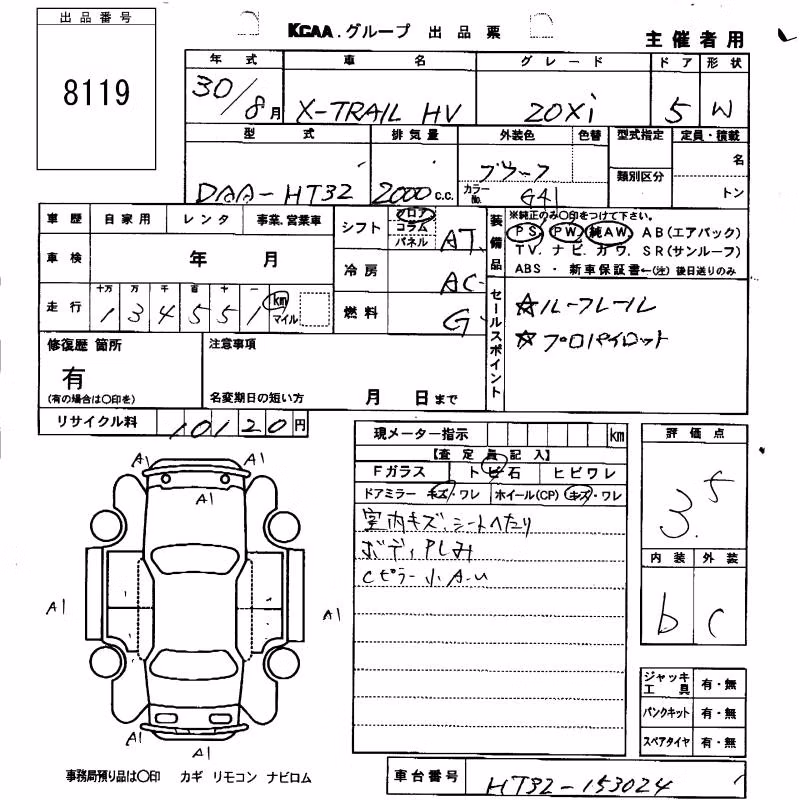 出品番号
8119
KCAA.グループ 出品票
主催者用
年式 車名 グレード ドア 形状
30/8月 X-TRAIL HV 20Xi 5 W
型式 排気量 外装色 色替 型式指定 定員・積載
類別区分
名
トン
DAA-HT32 2000 c.c. カラーNo. G41
車歴 自家用 レンタ 事業、営業車
シフト フロア コラム パネル AT
装備品
※純正のみ〇印をつけて下さい。
PS. PW. 純AW. AB(エアバッグ)
TV. ナビ. カワ. SR(サンルーフ)
ABS・新車保証書←(注)後日送りのみ
車検 年 月
冷房 AC
走行 十万 万 千 百 十 一
134551 km マイル
燃料 G
セールスポイント
☆ルーフレール
☆プロパイロット
修復歴 箇所
有
(有の場合は〇印を)
注意事項
名変期日の短い方 月 日まで
リサイクル料 10120円
現メーター指示 km
【査定員記入】
Fガラス トビ石 ヒビワレ
ドアミラー キズ・ワレ ホイール(CP) キズ・ワレ
室内キズ、シートヘたり
ボディPしみ
Cピラー小A-U
評価点
3.5
内装 外装
b c
A1 A1
A1
A1 A1
A1
A1
ジャッキ工具 有・無
パンクキット 有・無
スペアタイヤ 有・無
事務局預り品は〇印 カギ リモコン ナビロム
車台番号 HT32-153024